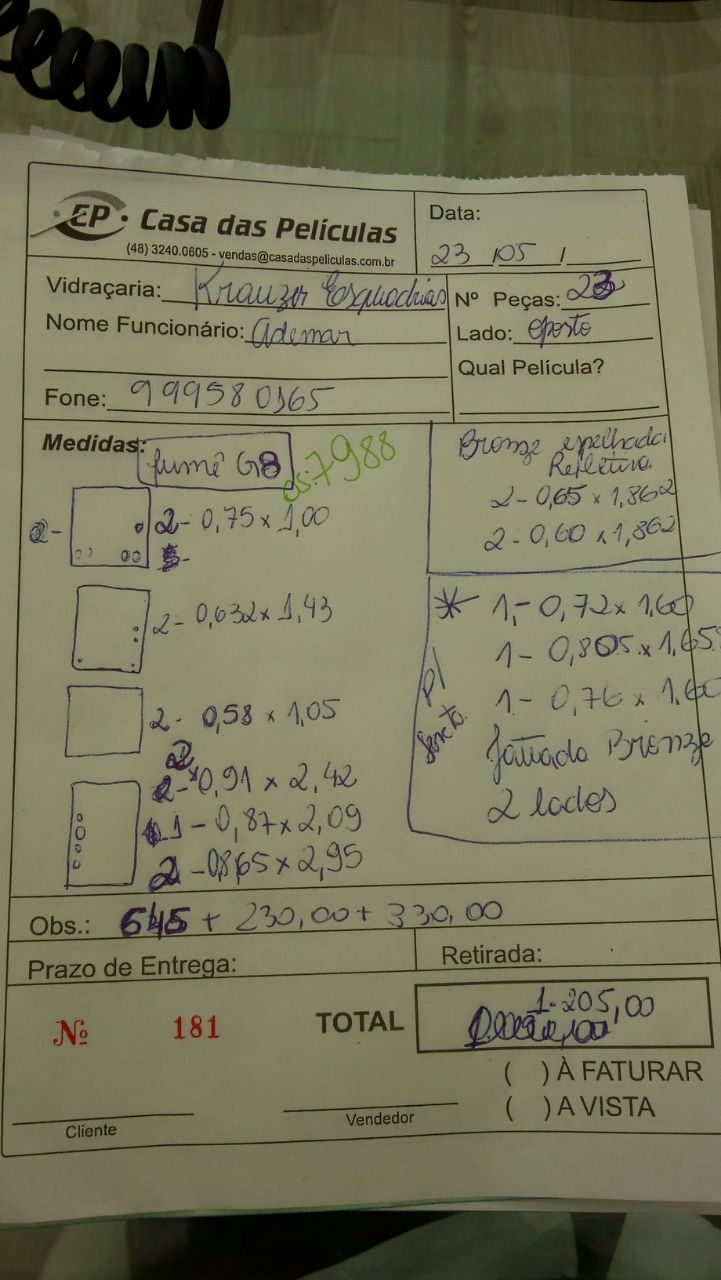 EP Casa das Películas
(48) 3240.0605 - vendas@casadaspeliculas.com.br
Data:
23 / 05 /
Vidraçaria: Krauzer Esquadrias
Nº Peças: 23
Nome Funcionário: Ademar
Lado: oposto
Qual Película?
Fone: 999580365
Medidas:
fumê G8
os: 7988
2- 2- 0,75 x 1,00
2- 0,632 x 1,43
2- 0,58 x 1,05
2
2- 0,91 x 2,42
1 - 0,87 x 2,09
2 - 0,865 x 2,95
Bronze espelhada
Refletiva
2 - 0,65 x 1,862
2 - 0,60 x 1,862
* 1,- 0,72 x 1,60
1 - 0,805 x 1,65
1 - 0,76 x 1,60
P/
Sexta
Jatiado Bronze
2 lados
Obs.: 645 + 230,00 + 330,00
Prazo de Entrega:
Retirada:
Nº 181
TOTAL
1.205,00
( ) À FATURAR
( ) A VISTA
Cliente
Vendedor